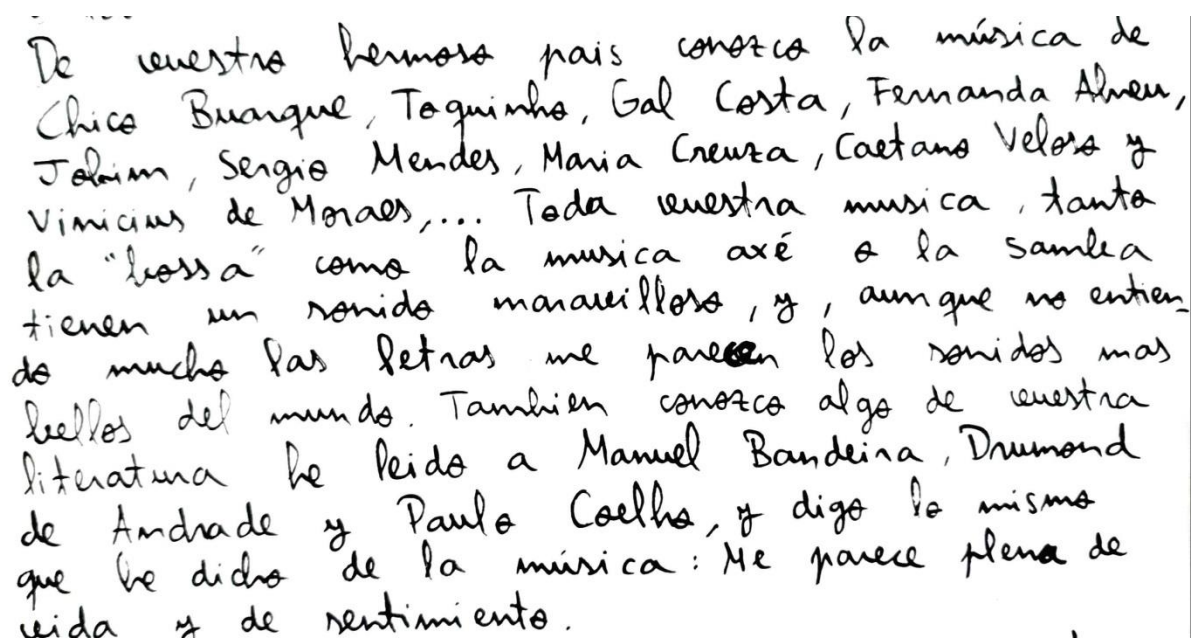 De vuestro hermoso pais conozco la música de
Chico Buarque, Toquinho, Gal Costa, Fernanda Abreu,
Jobim, Sergio Mendes, Maria Creuza, Caetano Veloso y
Vinicius de Moraes,... Toda vuestra musica, tanto
la "bossa" como la musica axé o la samba
tienen un sonido maravilloso, y, aunque no entien_
do mucho las letras me parecen los sonidos mas
bellos del mundo. Tambien conozco algo de vuestra
literatura he leido a Manuel Bandeira, Drumond
de Andrade y Paulo Coelho, y digo lo mismo
que he dicho de la música: Me parece plena de
vida y de sentimiento.